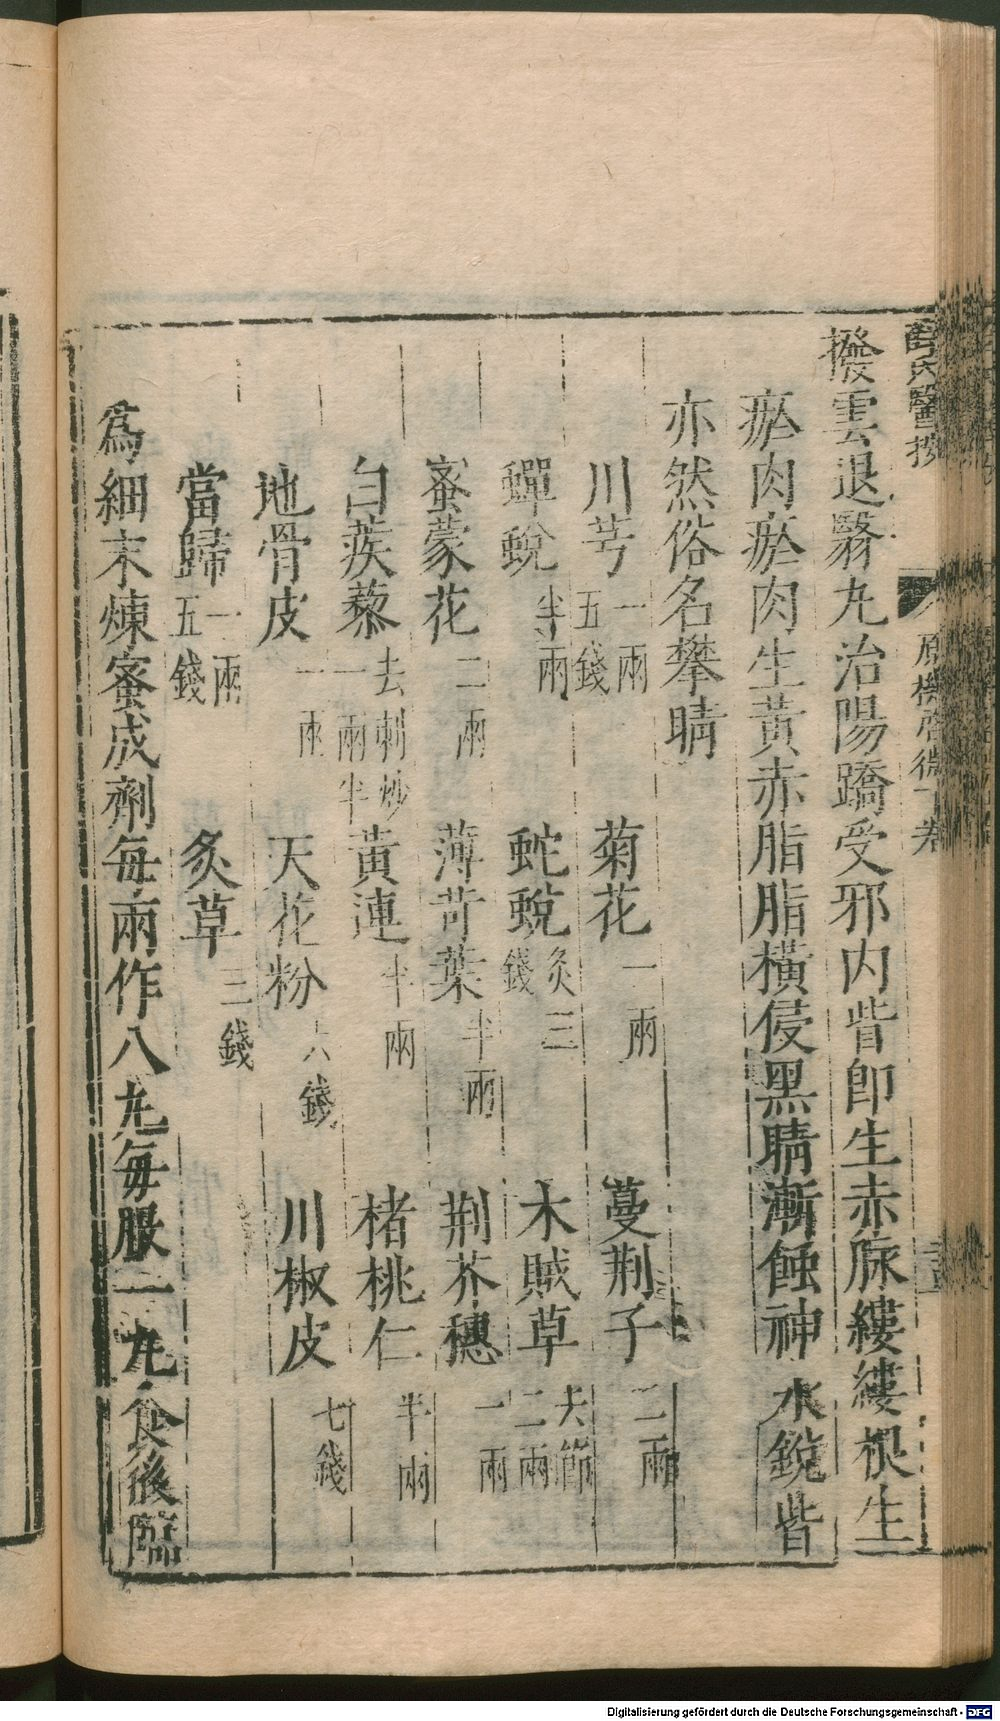 薛氏醫按
原機啓微下卷
撥雲退翳丸治陽蹻受邪内眥卽生赤脉縷縷根生
瘀肉瘀肉生黃赤脂脂橫侵黑睛漸蝕神水銳眥
亦然俗名攀睛
川芎一兩五錢 菊花一兩 蔓荆子二兩
蟬蛻半兩 蛇蛻炙三錢 木賊草去節二兩
蜜蒙花二兩 薄苛葉半兩 荆芥穗一兩
白蒺藜去刺炒一兩半 黃連半兩 楮桃仁半兩
地骨皮一兩 天花粉六錢 川椒皮七錢
當歸一兩五錢 炙草三錢
爲細末煉蜜成劑每兩作八丸每服一丸食後臨
Digitalisierung gefördert durch die Deutsche Forschungsgemeinschaft - DFG